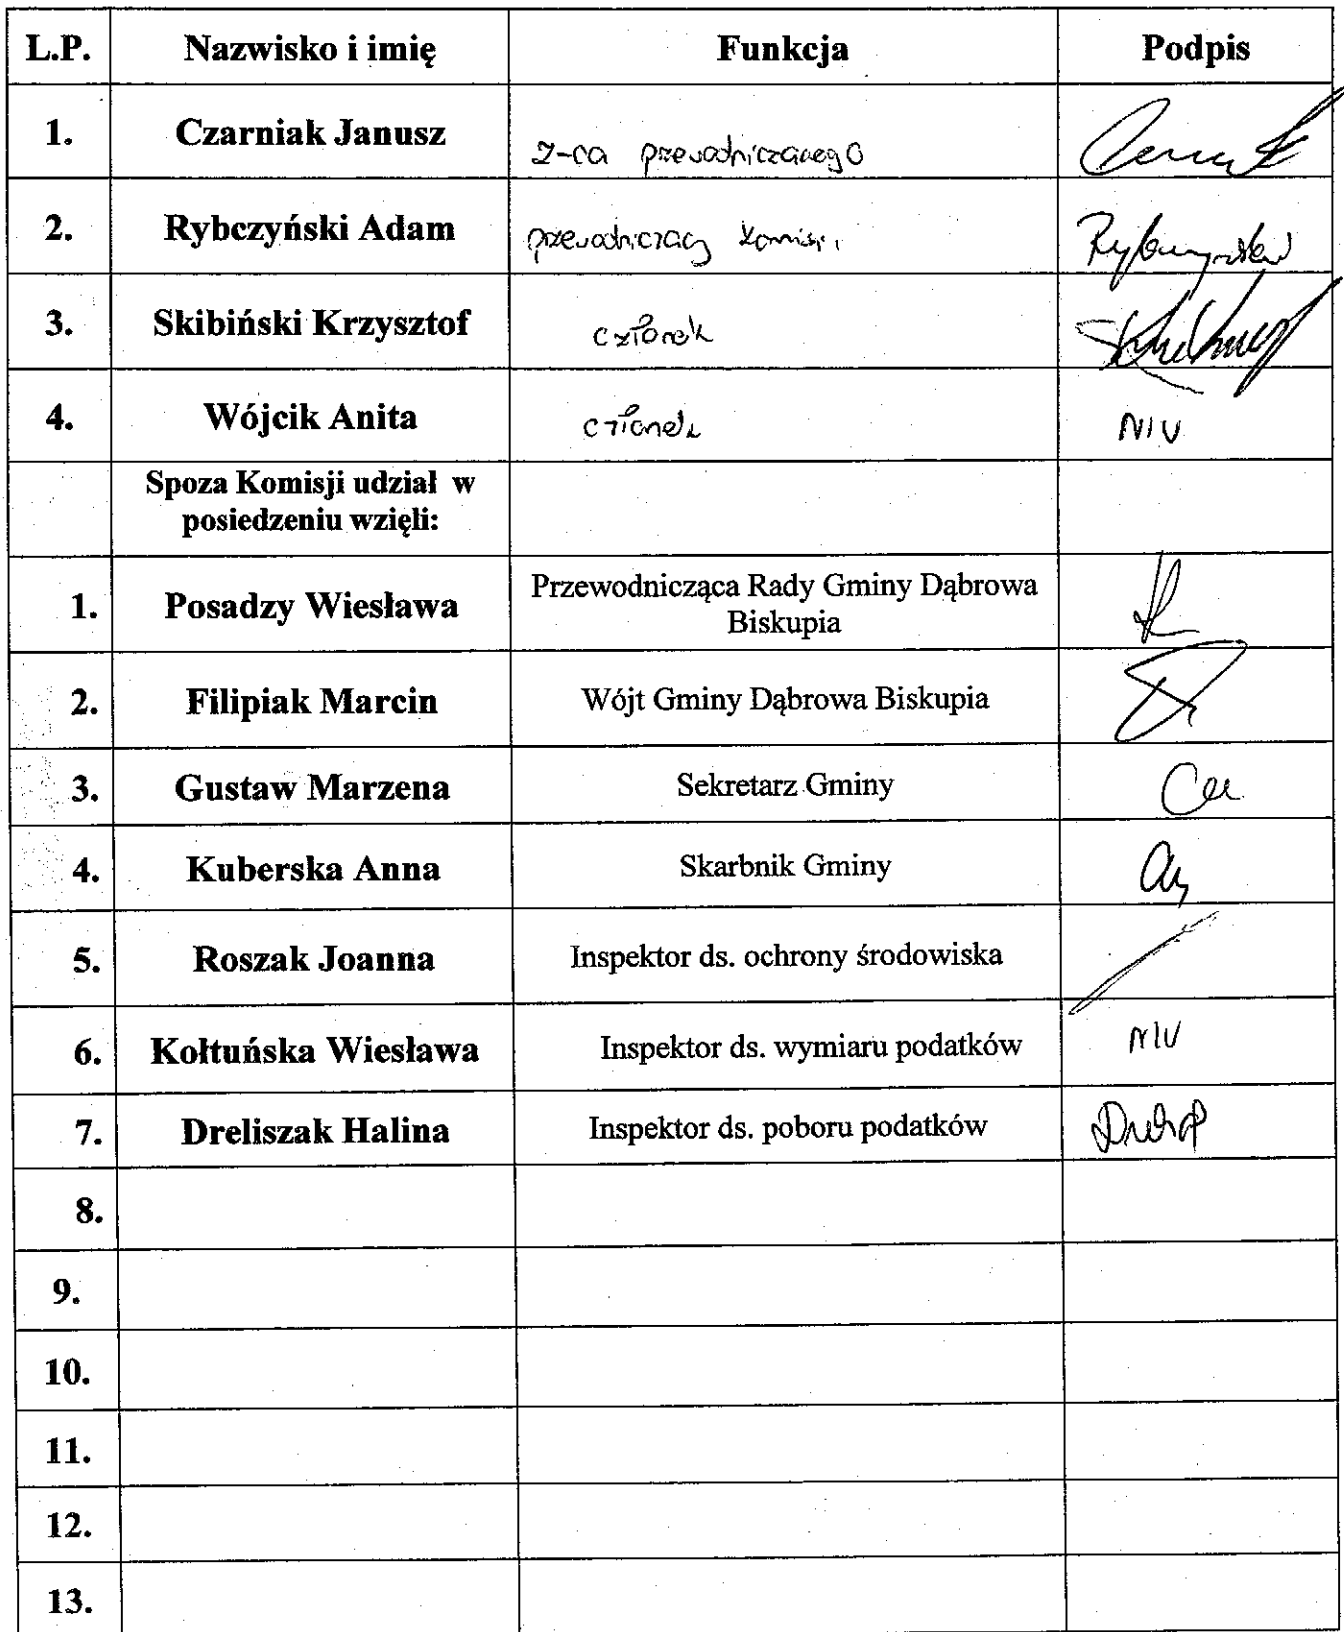 L.P. Nazwisko i imię Funkcja Podpis
1. Czarniak Janusz z-ca przewodniczącego
2. Rybczyński Adam przewodniczący komisji
3. Skibiński Krzysztof członek
4. Wójcik Anita członek
Spoza Komisji udział w
posiedzeniu wzięli:
1. Posadzy Wiesława Przewodnicząca Rady Gminy Dąbrowa
Biskupia
2. Filipiak Marcin Wójt Gminy Dąbrowa Biskupia
3. Gustaw Marzena Sekretarz Gminy
4. Kuberska Anna Skarbnik Gminy
5. Roszak Joanna Inspektor ds. ochrony środowiska
6. Kołtuńska Wiesława Inspektor ds. wymiaru podatków
7. Dreliszak Halina Inspektor ds. poboru podatków
8.
9.
10.
11.
12.
13.